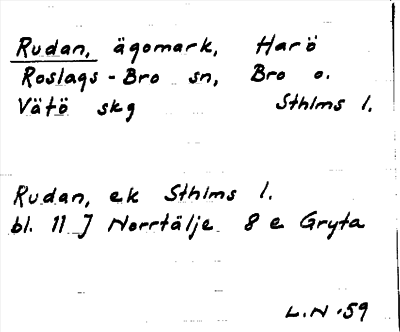 Rudan, ägomark, Harö
Roslags-Bro sn, Bro o.
Vätö skg Sthlms l.
Rudan, ek Sthlms l.
bl. 11 J Norrtälje 8 e Gryta
L.N.59